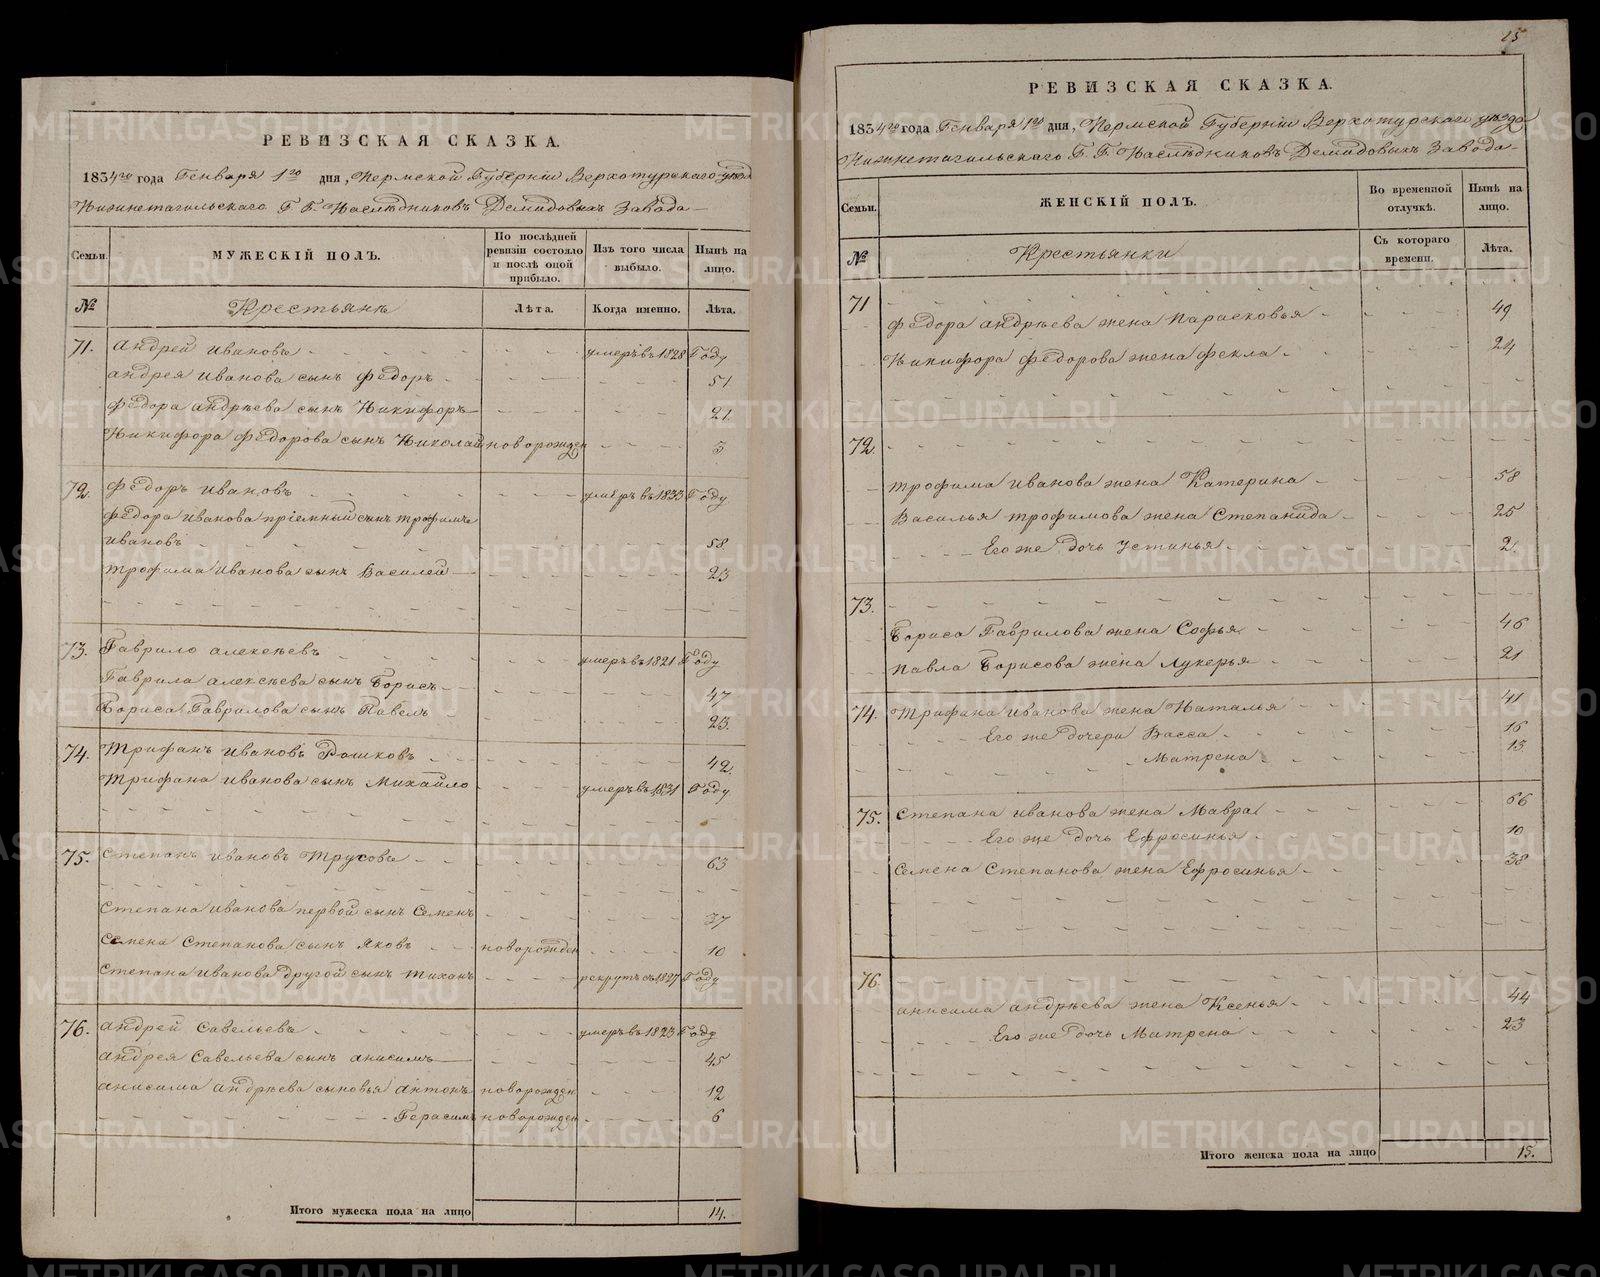 РЕВИЗСКАЯ СКАЗКА.
1834го года Генваря 1го дня, Пермской Губерніи Верхотурскаго уѣзда
Нижнетагильскаго Г. Г. Наслѣдниковъ Демидовыхъ Завода
Семьи.
МУЖЕСКІЙ ПОЛЪ.
По послѣдней ревизіи состояло и послѣ оной прибыло.
Изъ того числа выбыло.
Нынѣ на лицо.
№ Крестьянъ Лѣта. Когда именно. Лѣта.
71. Андрей Ивановъ умеръ въ 1828 Году
Андрея Иванова сынъ Федоръ 51
Федора Андрѣева сынъ Никифоръ 21
Никифора Федорова сынъ Николай новорожден 3
72. Федоръ Ивановъ умеръ въ 1833 Году
Федора Иванова пріемный сынъ Трофимъ
Ивановъ 58
Трофима Иванова сынъ Василей 23
73. Гаврило Алексѣевъ умеръ въ 1821 Году
Гаврила Алексѣева сынъ Борисъ 47
Бориса Гаврилова сынъ Павелъ 23.
74. Трифанъ Ивановъ 42.
Трифана Иванова сынъ Михайло умеръ въ 1831 Году
75. Степанъ Ивановъ Трусовъ 63
Степана Иванова первой сынъ Семенъ 37
Семена Степанова сынъ Яковъ новорожден 10
Степана Иванова другой сынъ рекрутъ съ 1827 Году
76. Андрей Савельевъ умеръ въ 1823 Году
Андрея Савельева сынъ Анисимъ 45
Анисима Андрѣева сыновья Антонъ новорожден 12
Герасимъ новорожден 6
Итого мужеска пола на лицо 14.
15
РЕВИЗСКАЯ СКАЗКА.
1834го года Генваря 1го дня, Пермской Губерніи Верхотурскаго уѣзда
Нижнетагильскаго Г. Г. Наслѣдниковъ Демидовыхъ Завода
Семьи.
ЖЕНСКІЙ ПОЛЪ.
Во временной отлучкѣ.
Нынѣ на лицо.
№ Крестьянки Съ котораго времени. Лѣта.
71
Федора Андрѣева жена Парасковья 49
Никифора Федорова жена Фекла 24
72.
Трофима Иванова жена Катерина 58
Василья Трофимова жена Степанида 25
Его же дочь Устинья 2.
73.
Бориса Гаврилова жена Софья 46
Павла Борисова жена Лукерья 21
74. Трифана Иванова жена Наталья 41
Его же дочери Васса 16
Матрена 13
75. Степана Иванова жена Мавра 66
Его же дочь Ефросинья 10
Семена Степанова жена Ефросинья 38
76
Анисима Андрѣева жена Ксенья 44
Его же дочь Матрена 23
Итого женска пола на лицо 15.
METRIKI.GASO-URAL.RU